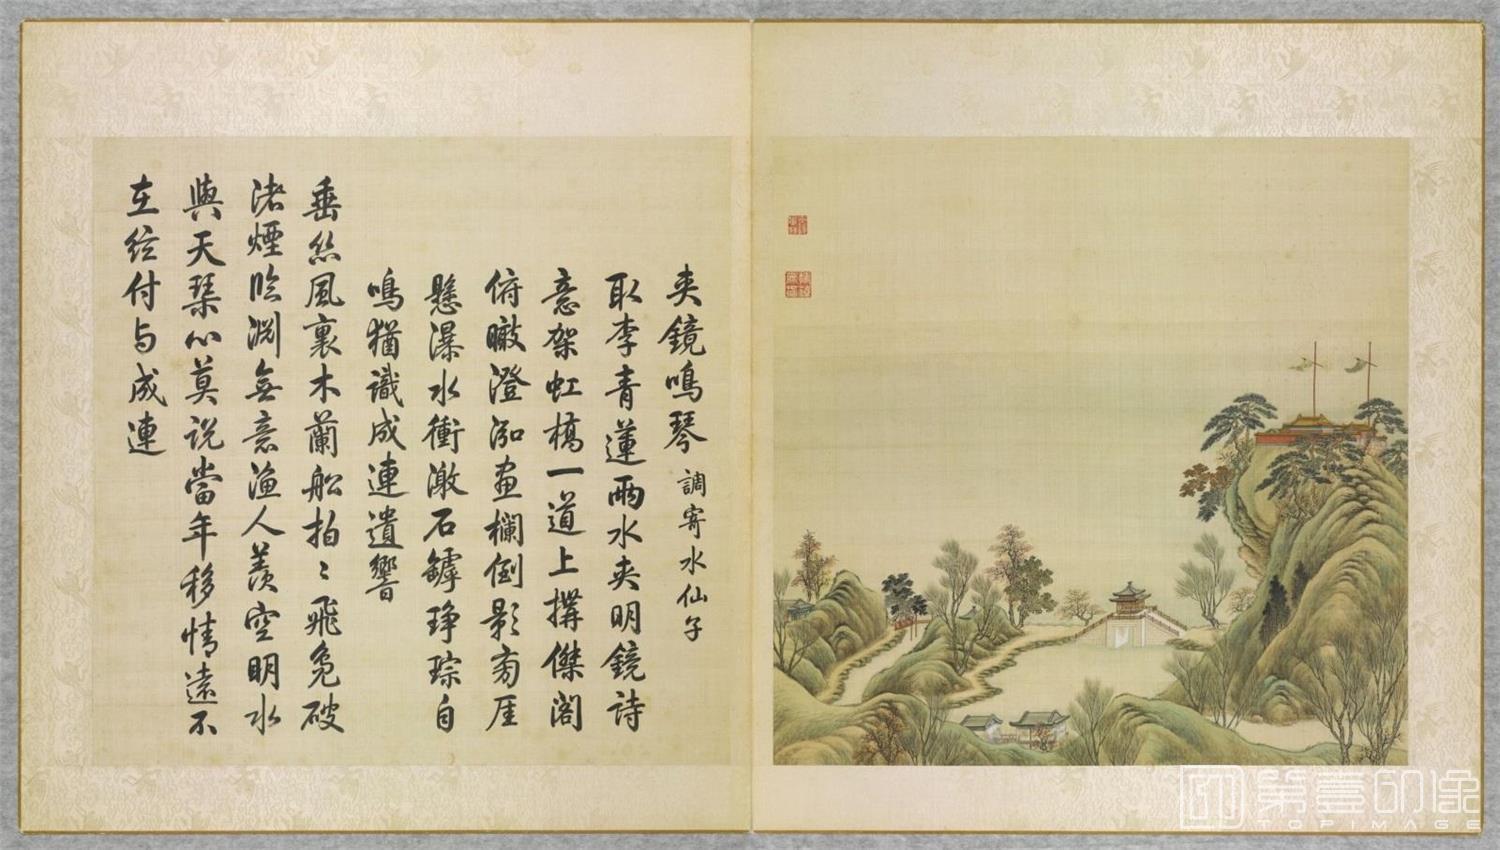 夾鏡鳴琴 調寄水仙子
取李青蓮兩水夾明鏡詩
意架虹橋一道上搆傑閣
俯瞰澄泓畫欄倒影旁厓
懸瀑水衝激石罅琤琮自
鳴猶識成連遺響
垂絲風裏木蘭船拍〻飛鳧破
渚煙臨淵無意漁人羨空明水
與天琴心莫說當年移情遠不
在絃付与成連
第壹印像
TOPIMAGE